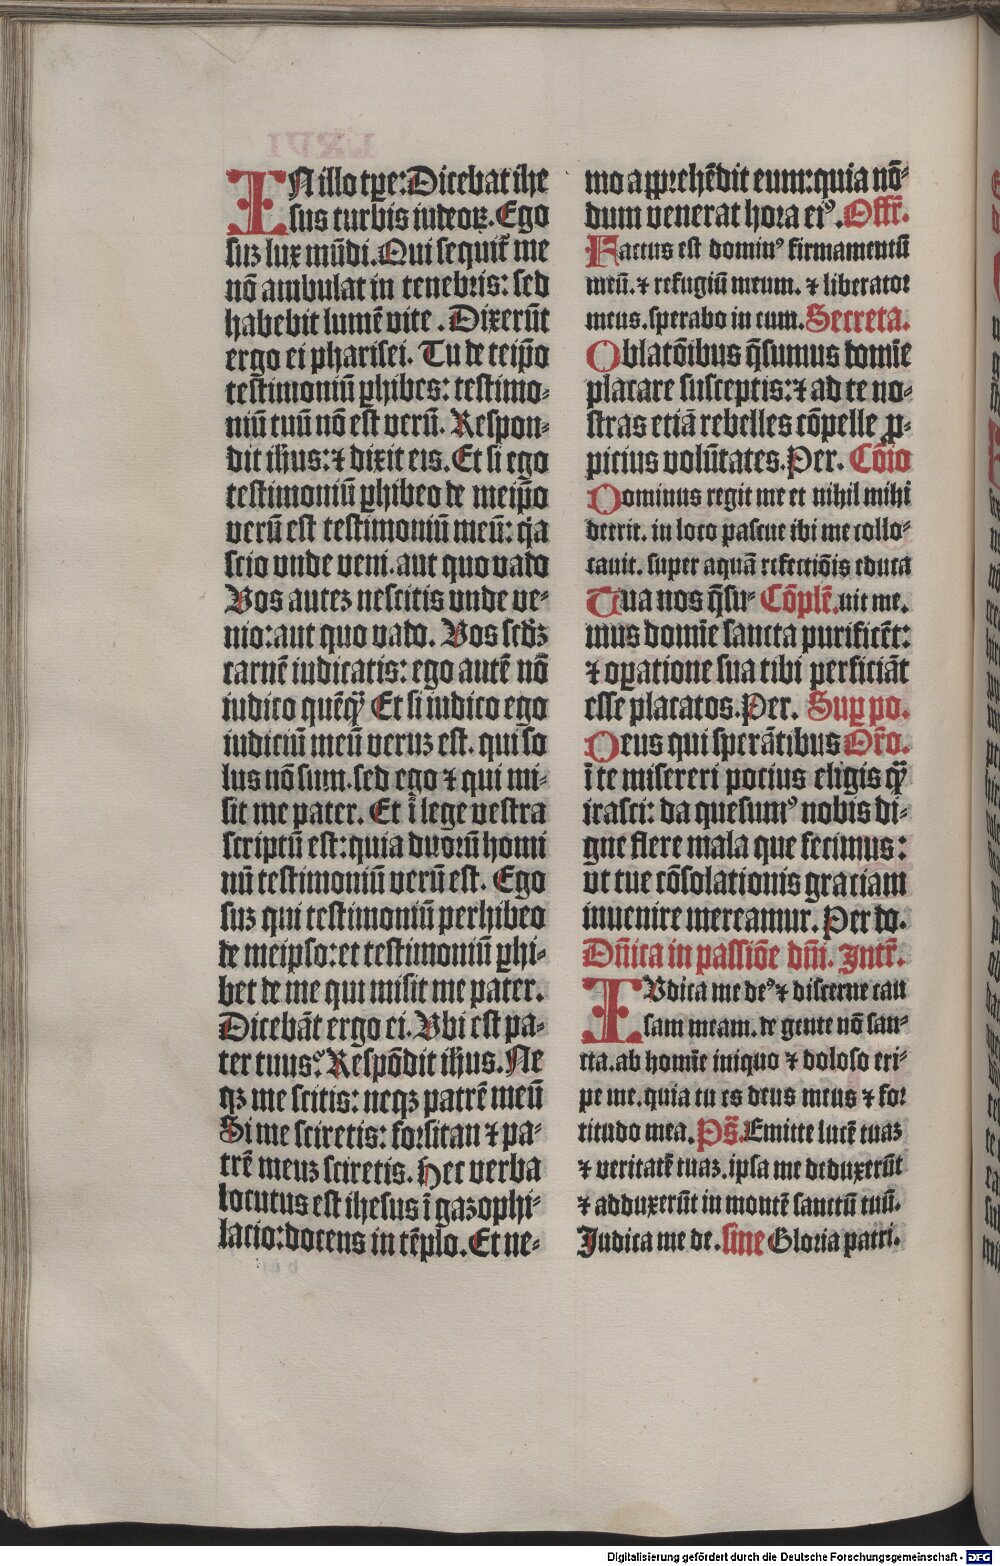 IN illo tp̄e: Dicebat ihe
sus turbis iudeoꝝ. Ego
suꝫ lux mūdi. Qui sequit᷑ me
nō ambulat in tenebris: sed
habebit lumē vite. Dixerūt
ergo ei pharisei. Tu de teip̄o
testimoniū ꝑhibes: testimo-
niū tuū nō est verū. Respon-
dit ih̄us: ⁊ dixit eis. Et si ego
testimoniū ꝑhibeo de meip̄o
verū est testimoniū meū: q̄a
scio vnde veni. aut quo vado
Vos auteꝫ nescitis vnde ve-
nio: aut quo vado. Vos scd̄ꝫ
carnē iudicatis: ego autē nō
iudico quēqꝫ Et si iudico ego
iudiciū meū veruꝫ est. qui so
lus nō sum. sed ego ⁊ qui mi-
sit me pater. Et ī lege vestra
scriptū est: quia duorū homi
nū testimoniū verū est. Ego
suꝫ qui testimoniū perhibeo
de meipso: et testimoniū ꝑhi-
bet de me qui misit me pater.
Dicebāt ergo ei. Vbi est pa-
ter tuus? Respōdit ih̄us. Ne
qꝫ me scitis: neqꝫ patrē meū
Si me sciretis: forsitan ⁊ pa-
trē meuꝫ sciretis. Hec verba
locutus est ihesus ī gazophi-
lacio: docens in tēplo. Et ne-
mo apprehēdit eum: quia nō-
dum venerat hora eiꝰ. Offr̄.
Factus est dominꝰ firmamentū
meū. ⁊ refugiū meum. ⁊ liberator
meus. sperabo in eum. Secreta.
Oblatōibus q̄sumus domīe
placare susceptis: ⁊ ad te no-
stras etiā rebelles cōpelle ꝓ-
picius volūtates. Per. Cōīo
Dominus regit me et nihil mihi
deerit. in loco pascue ibi me collo-
cauit. super aquā refectiōis educa
Tua nos q̄su- Cōplē. uit me.
mus domīe sancta purificēt:
⁊ oꝑatione sua tibi perficiāt
esse placatos. Per. Suꝑ po.
Deus qui sperātibus Or̄o.
ī te misereri potius eligis qꝫ
irasci: da quesumꝰ nobis di-
gne flere mala que fecimus:
vt tue cōsolationis graciam
inuenire mereamur. Per do.
Dn̄ica in passiōe dn̄i. Intr̄.
IVdica me deꝰ ⁊ discerne cau
sam meam. de gente nō san-
cta. ab homīe iniquo ⁊ doloso eri-
pe me. quia tu es deus meus ⁊ for
titudo mea. Ps̄. Emitte lucē tuaꝫ
⁊ veritatē tuaꝫ. ipsa me deduxerūt
⁊ adduxerūt in montē sanctū tuū.
Iudica me de. sine Gloria patri.
Digitalisierung gefördert durch die Deutsche Forschungsgemeinschaft - DFG